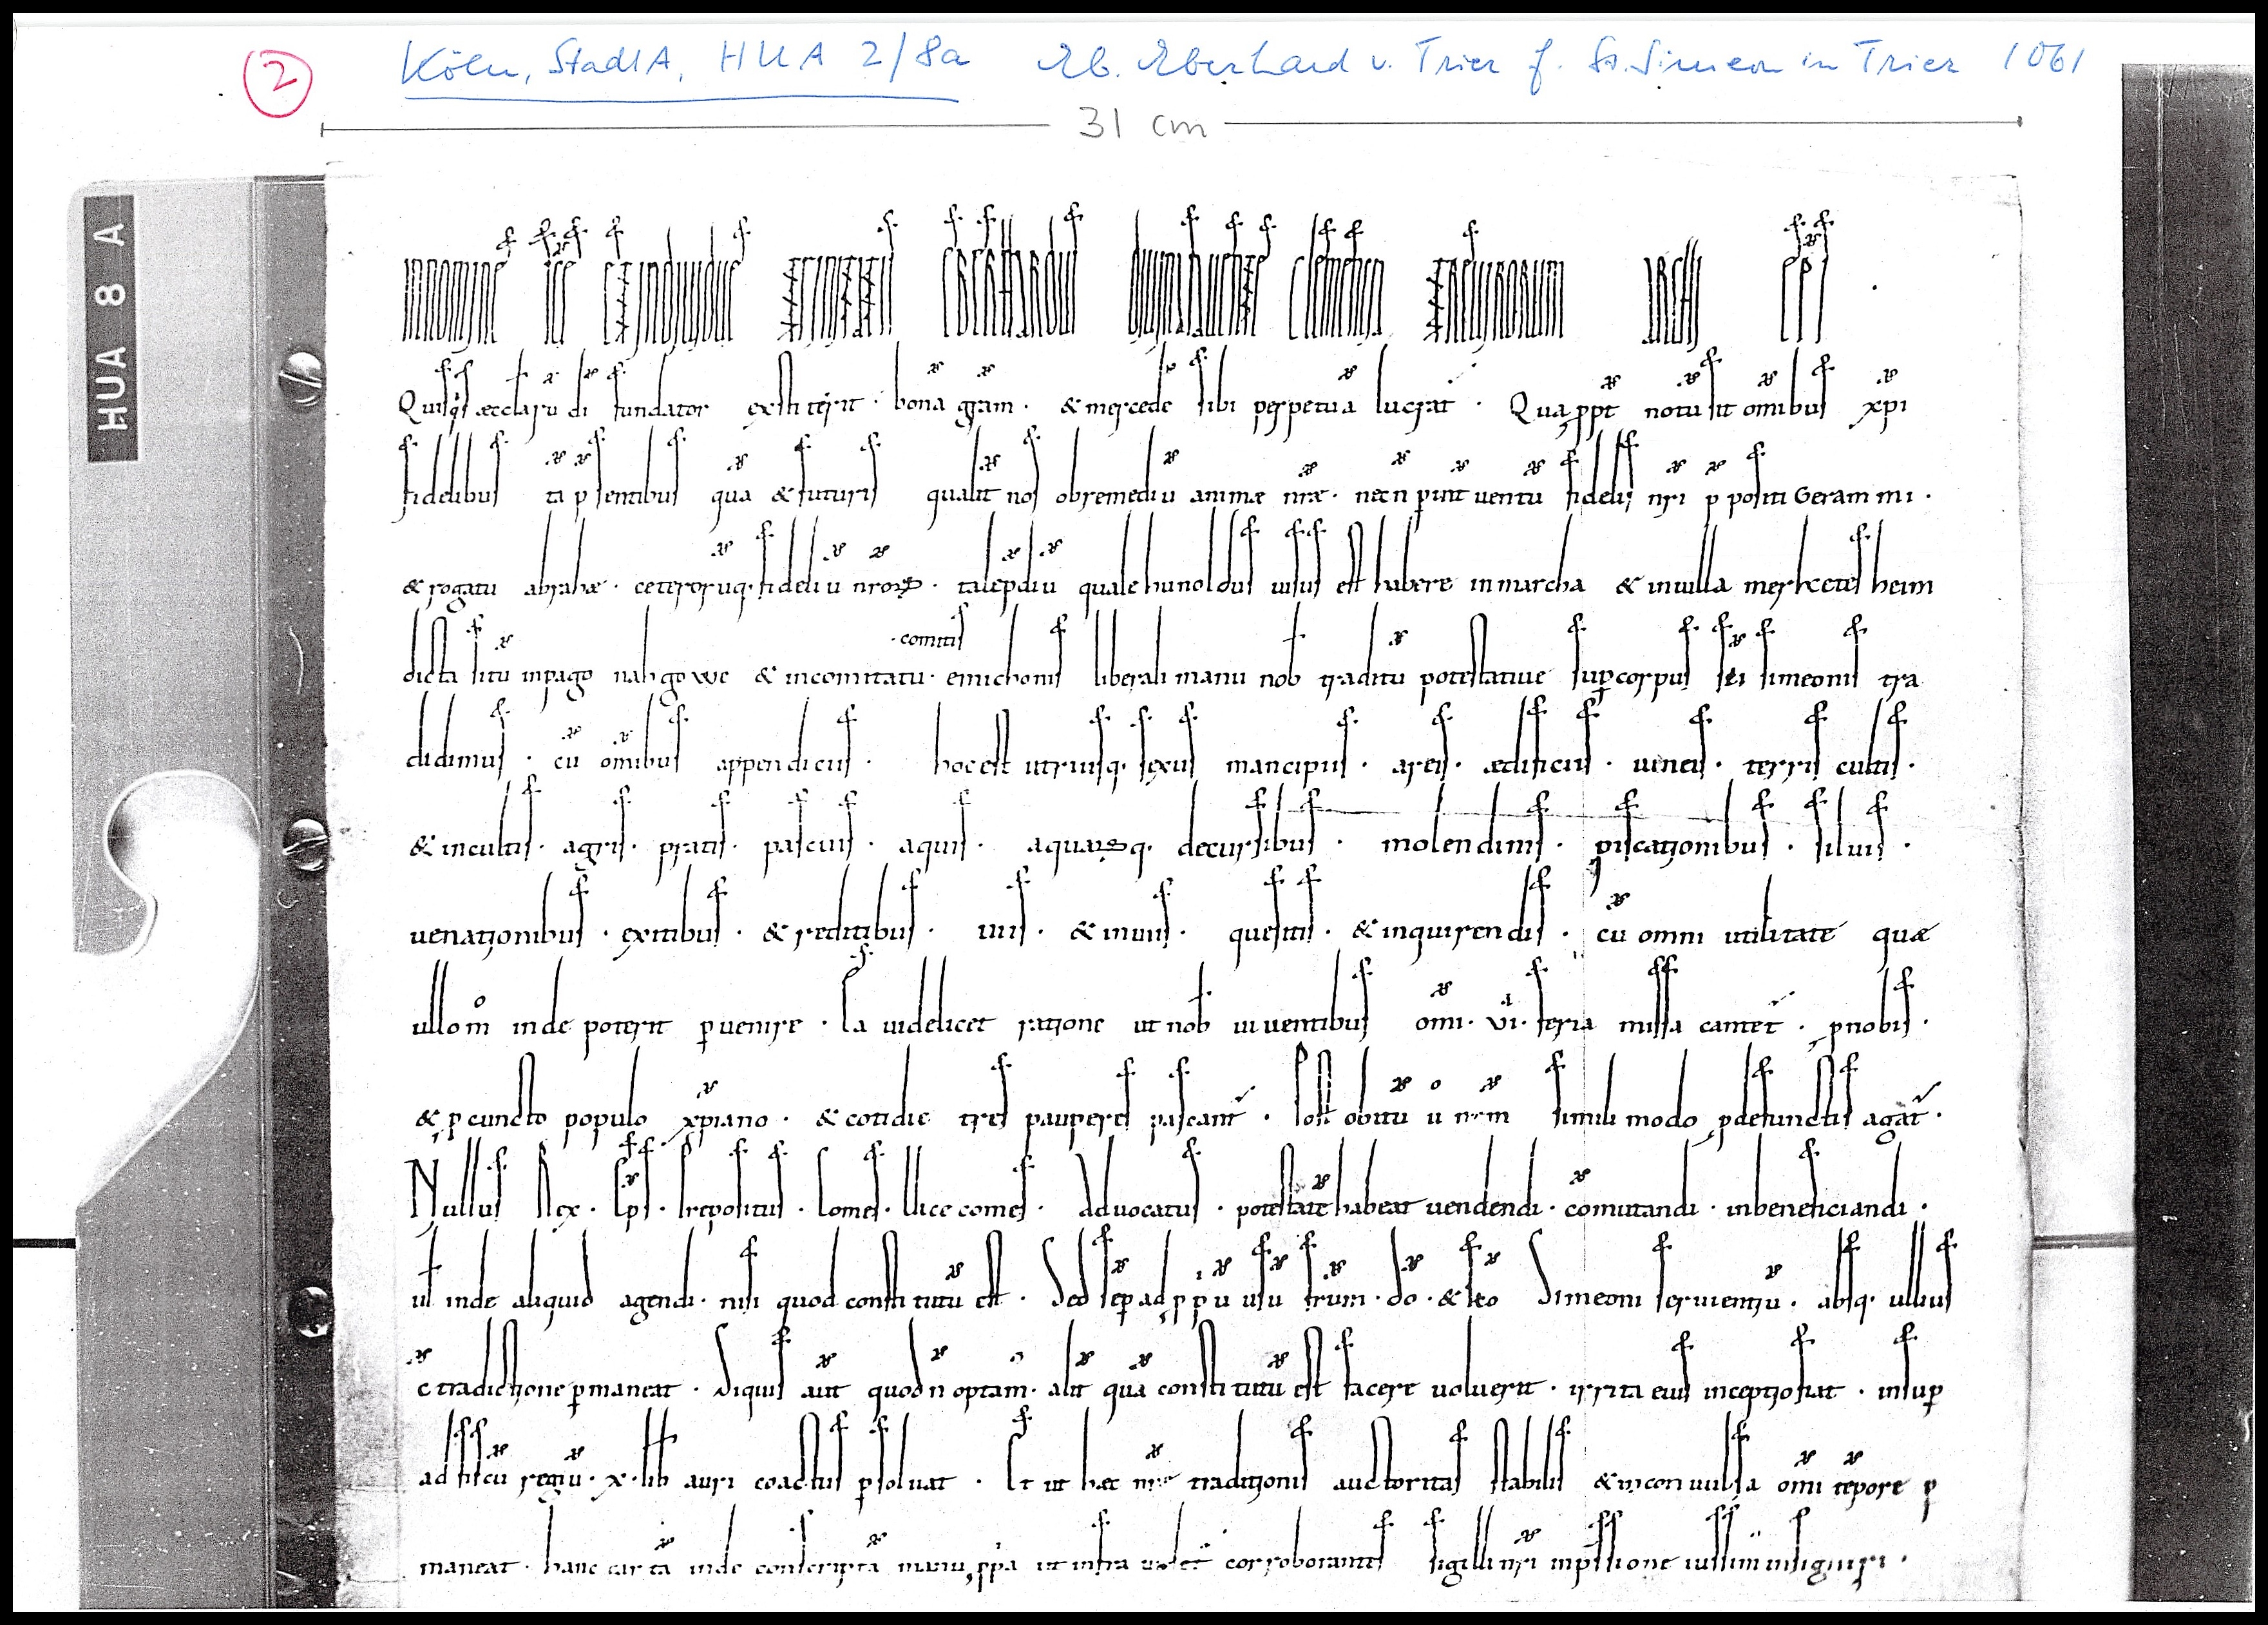 2 Köln, StadtA, HUA 2/8a Eb. Eberhard v. Trier f. St. Simeon in Trier 1061
31 cm
HUA 8 A
In nomine sce et indiuidue trinitatis eberhardus diuina clementia treuirorum archi eps
Quisqs æcclaru di fundator exstiterit · bona gram · & mercede sibi perpetua lucrat · Qua ppt notu sit omibus xpi
fidelibus ta psentibus qua & futuris qualit nos ob remediu animæ nræ · necn p int uentu fidelis nri p positi Gerammi ·
& rogatu abrahæ · ceterorūq · fideliu nroꝝ · tale pdiu quale hunoldus uisus est habere in marcha & in uilla merketesheim
dicta situ in pago nahgowe & in comitatu · emichonis · comitis liberali manu nob traditu potestatiue sup corpus sci simeonis tra
didimus · cu omibus appendiciis · hoc est utriusq · sexus mancipiis · areis · ædificiis · uineis · terris cultis ·
& incultis · agris · pratis · pascuis · aquis · aquaꝝq · decursibus · molendinis · piscationibus · siluis ·
uenationibus · exitibus · & reditibus · uiis · & inuiis · quesitis · & inquirendis · cu omni utilitate quæ
ullo m inde poterit puenire · Ea uidelicet ratione ut nob uiuentibus omi · vi · feria missa cantet · p nobis ·
& p cuncto populo xpiano · & cotidie tres pauperes pascant · Post obitu u nrm simili modo p defunctis agat ·
Nullus Rex · Eps · Prepositus · Comes · Vice comes · Aduocatus · potestate habeat uendendi · comutandi · inbeneficiandi ·
ul inde aliquid agendi · nisi quod constitutu est · Sed sep ad ppu usu frum · do · & sco Simeoni seruientiu · absq · ullius
c tradictione pmaneat · Siquis aut quod n optam · alit qua constitutu est facere uoluerit · irrita eius inceptio fiat · insup
ad fiscu regiu · x · lib auri coactus psoluat · Et ut hæc nre traditionis auctoritas stabilis & inconuulsa omi tepore p
maneat · hanc carta inde conscripta manu ppa ut infra uidet corroborantes sigilli nri inpssione iussim insigniri ·